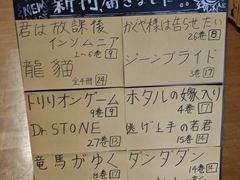 NEW 新刊届きました!!
君は放課後
インソムニア
1〜6巻 9
かぐや様は告らせたい
26巻 8
龍貓
全4冊 24
ジーンブライド
3巻 17
トリリオンゲーム
9巻 9
ホタルの嫁入り
4巻 17
Dr.STONE
27巻 13
逃げ上手の若君
15巻 14
竜馬がゆく
8巻 17
ダンダダン
14巻 14